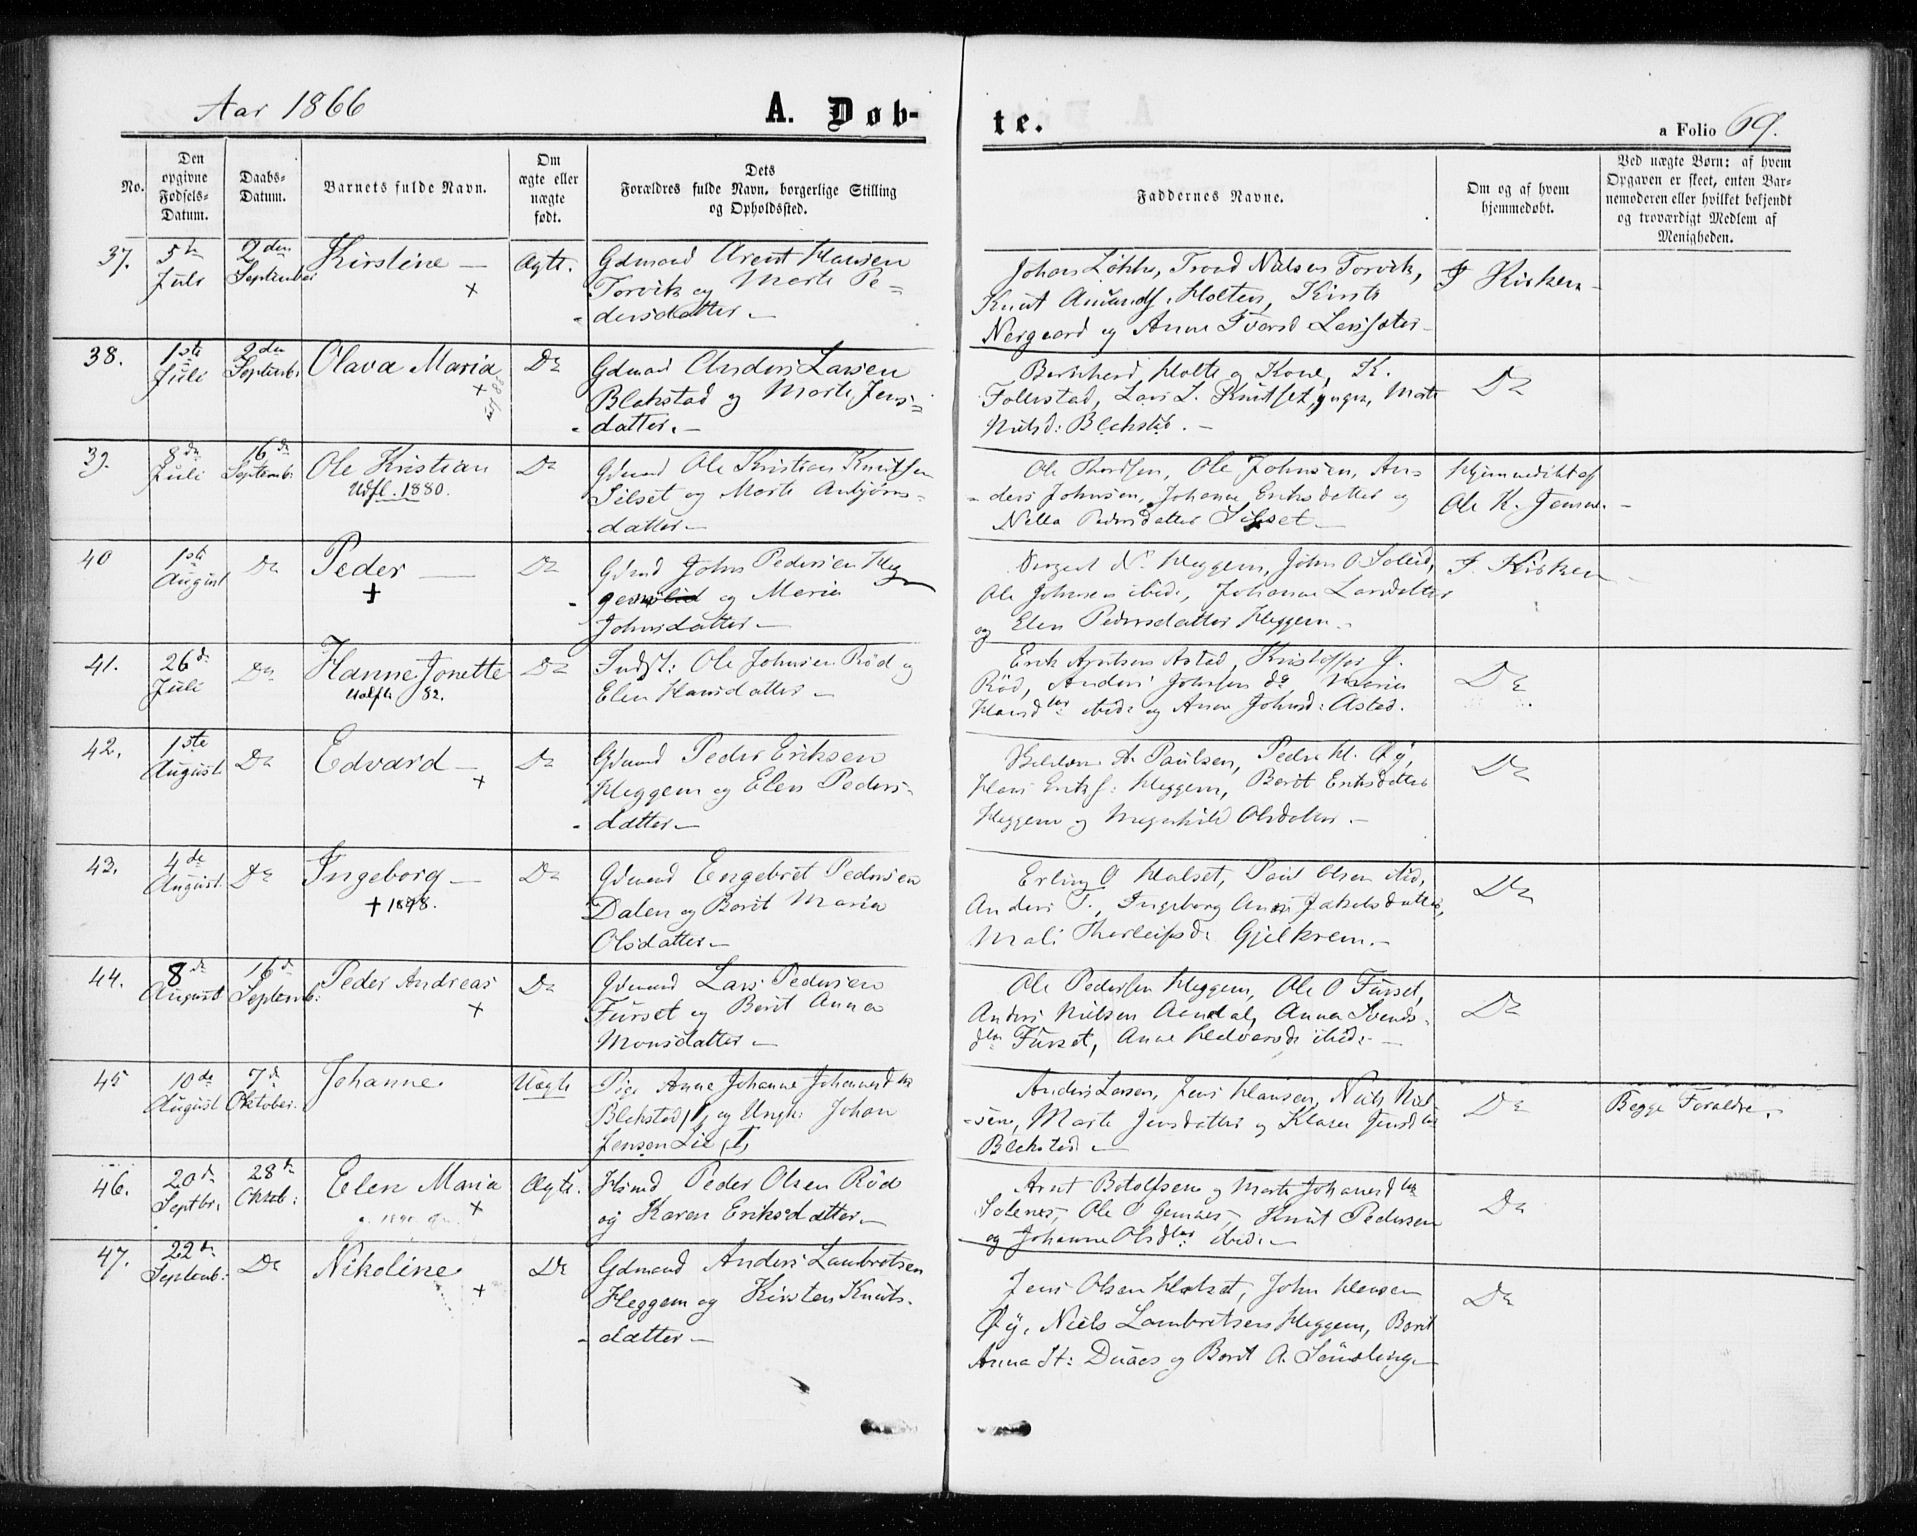 Aar 1866 A. Døbte. a Folio 69.
No.
Den opgivne Fødsels-Datum.
Daabs-Datum.
Barnets fulde Navn.
Om ægte eller nægte født.
Dets Forældres fulde Navn, borgerlige Stilling og Opholdssted.
Faddernes Navne.
Om og af hvem hjemmedøbt.
Ved uægte Børn: af hvem Opgaven er skeet, enten Barnemoderen eller hvilket bekjendt og troværdigt Medlem af Menigheden.
37. 5te Juli 2den September Kirstine — + Ægte.
Gdmand Arent Hansen
Torvik og Marte Pe-
dersdatter —
Johan Løkke, Trond Nielsen Torvik,
Knut Amunds. Holten, Kirsti
Nergaard og Anne Larssæter
I Kirken —
38. 1ste Juli 2den Septemb. Olava Maria + Do
Gdmand Anders Larsen
Blekstad og Marte Jens-
datter. —
Bernhard Holte og Kone, K.
Follestad, Lars L. Knutset, Marte
Nielsd: Blekstad. —
Do
39. 8de Juli 16de Septemb. Ole Kristian Do
Udfl. 1880.
Gdmand Ole Kristian Knutsen
Silset og Marte Anbjørns-
datter —
Ole Thordsen, Ole Johnsen, An-
ders Johnsen, Johanne Eriksdatter og
Nella Pedersdatter Silset —
Hjemmedøbt af
Ole K. Jensen. —
40 1ste August Do Peder — + Do
Gdmand John Pedersen Heg
gemslid og Marie
Johnsdatter —
N. Heggem, John O Sollid,
Ole Johnsen ibid:, Johanne Larsdatter
og Elen Pedersdatter Heggem. —
I Kirken —
41. 26de Juli Do Hanne Jonette Do
Udfl. 82.
Indst: Ole Johnsen Rød og
Elen Hansdatter —
Erik Arntsen Astad, Kristoffer J.
Rød, Anders Johnsen do Maria
Hansdtr ibid: og Anne Johnsd: Astad.
Do
42. 1ste August Do Edvard — + Do
Gdmand Peder Eriksen
Heggem og Elen Peders-
datter —
A. Paulsen, Peder H. Øy,
Hans Eriks: Heggem, Berit Eriksdatter
Heggem og Magnhild Olsdatter. —
Do
43. 4de August Do Ingeborg — Do
+ 1898.
Gdmand Engebret Pedersen
Dalen og Berit Maria
Olsdatter —
Erling O Halset, Paul Olsen ibid,
Anders T., Ingeborg Anne Jakobsdatter,
Mali Thorleifsdr Gjelkrem. —
Do
44. 8de August 16de Septemb: Peder Andreas + Do
Gdmand Lars Pedersen
Furset og Berit Anna
Monsdatter —
Ole Pedersen Heggem, Ole O Furset,
Anders Nielsen Aandal, Anna Svends-
dtr Furset, Anne Hedvarsdr ibid: —
Do
45 10de August 7de Oktober. Johanne. Uægte
Pige Anne Johanne Johannesdtr
Blekstad, og Ungk: Johan
Jensen Lie
Anders Larsen, Jens Hansen, Niels Niel-
sen, Marte Jensdatter og Klara Jensdtr
Blekstad —
Do
Begge Forældre.
46. 20de Septbr. 28de Oktob: Elen Maria + Ægte.
Hsmd Peder Olsen Rød
og Karen Eriksdatter —
Arnt Botolfsen og Marte Johansdtr
Solenes, Ole O Gemnes, Knut Pedersen
og Johanne Olsdtr ibid: —
Do
47. 22de Septemb: Do Nikoline + Do
Gdmand Anders Lambretsen
Heggem og Kirsten Knuts-
datter —
Jens Olsen Halset, John Hansen
Øy, Niels Lambretsen Heggem, Berit
Anna St: Dunes og Berit A. Sandlinge —
Do